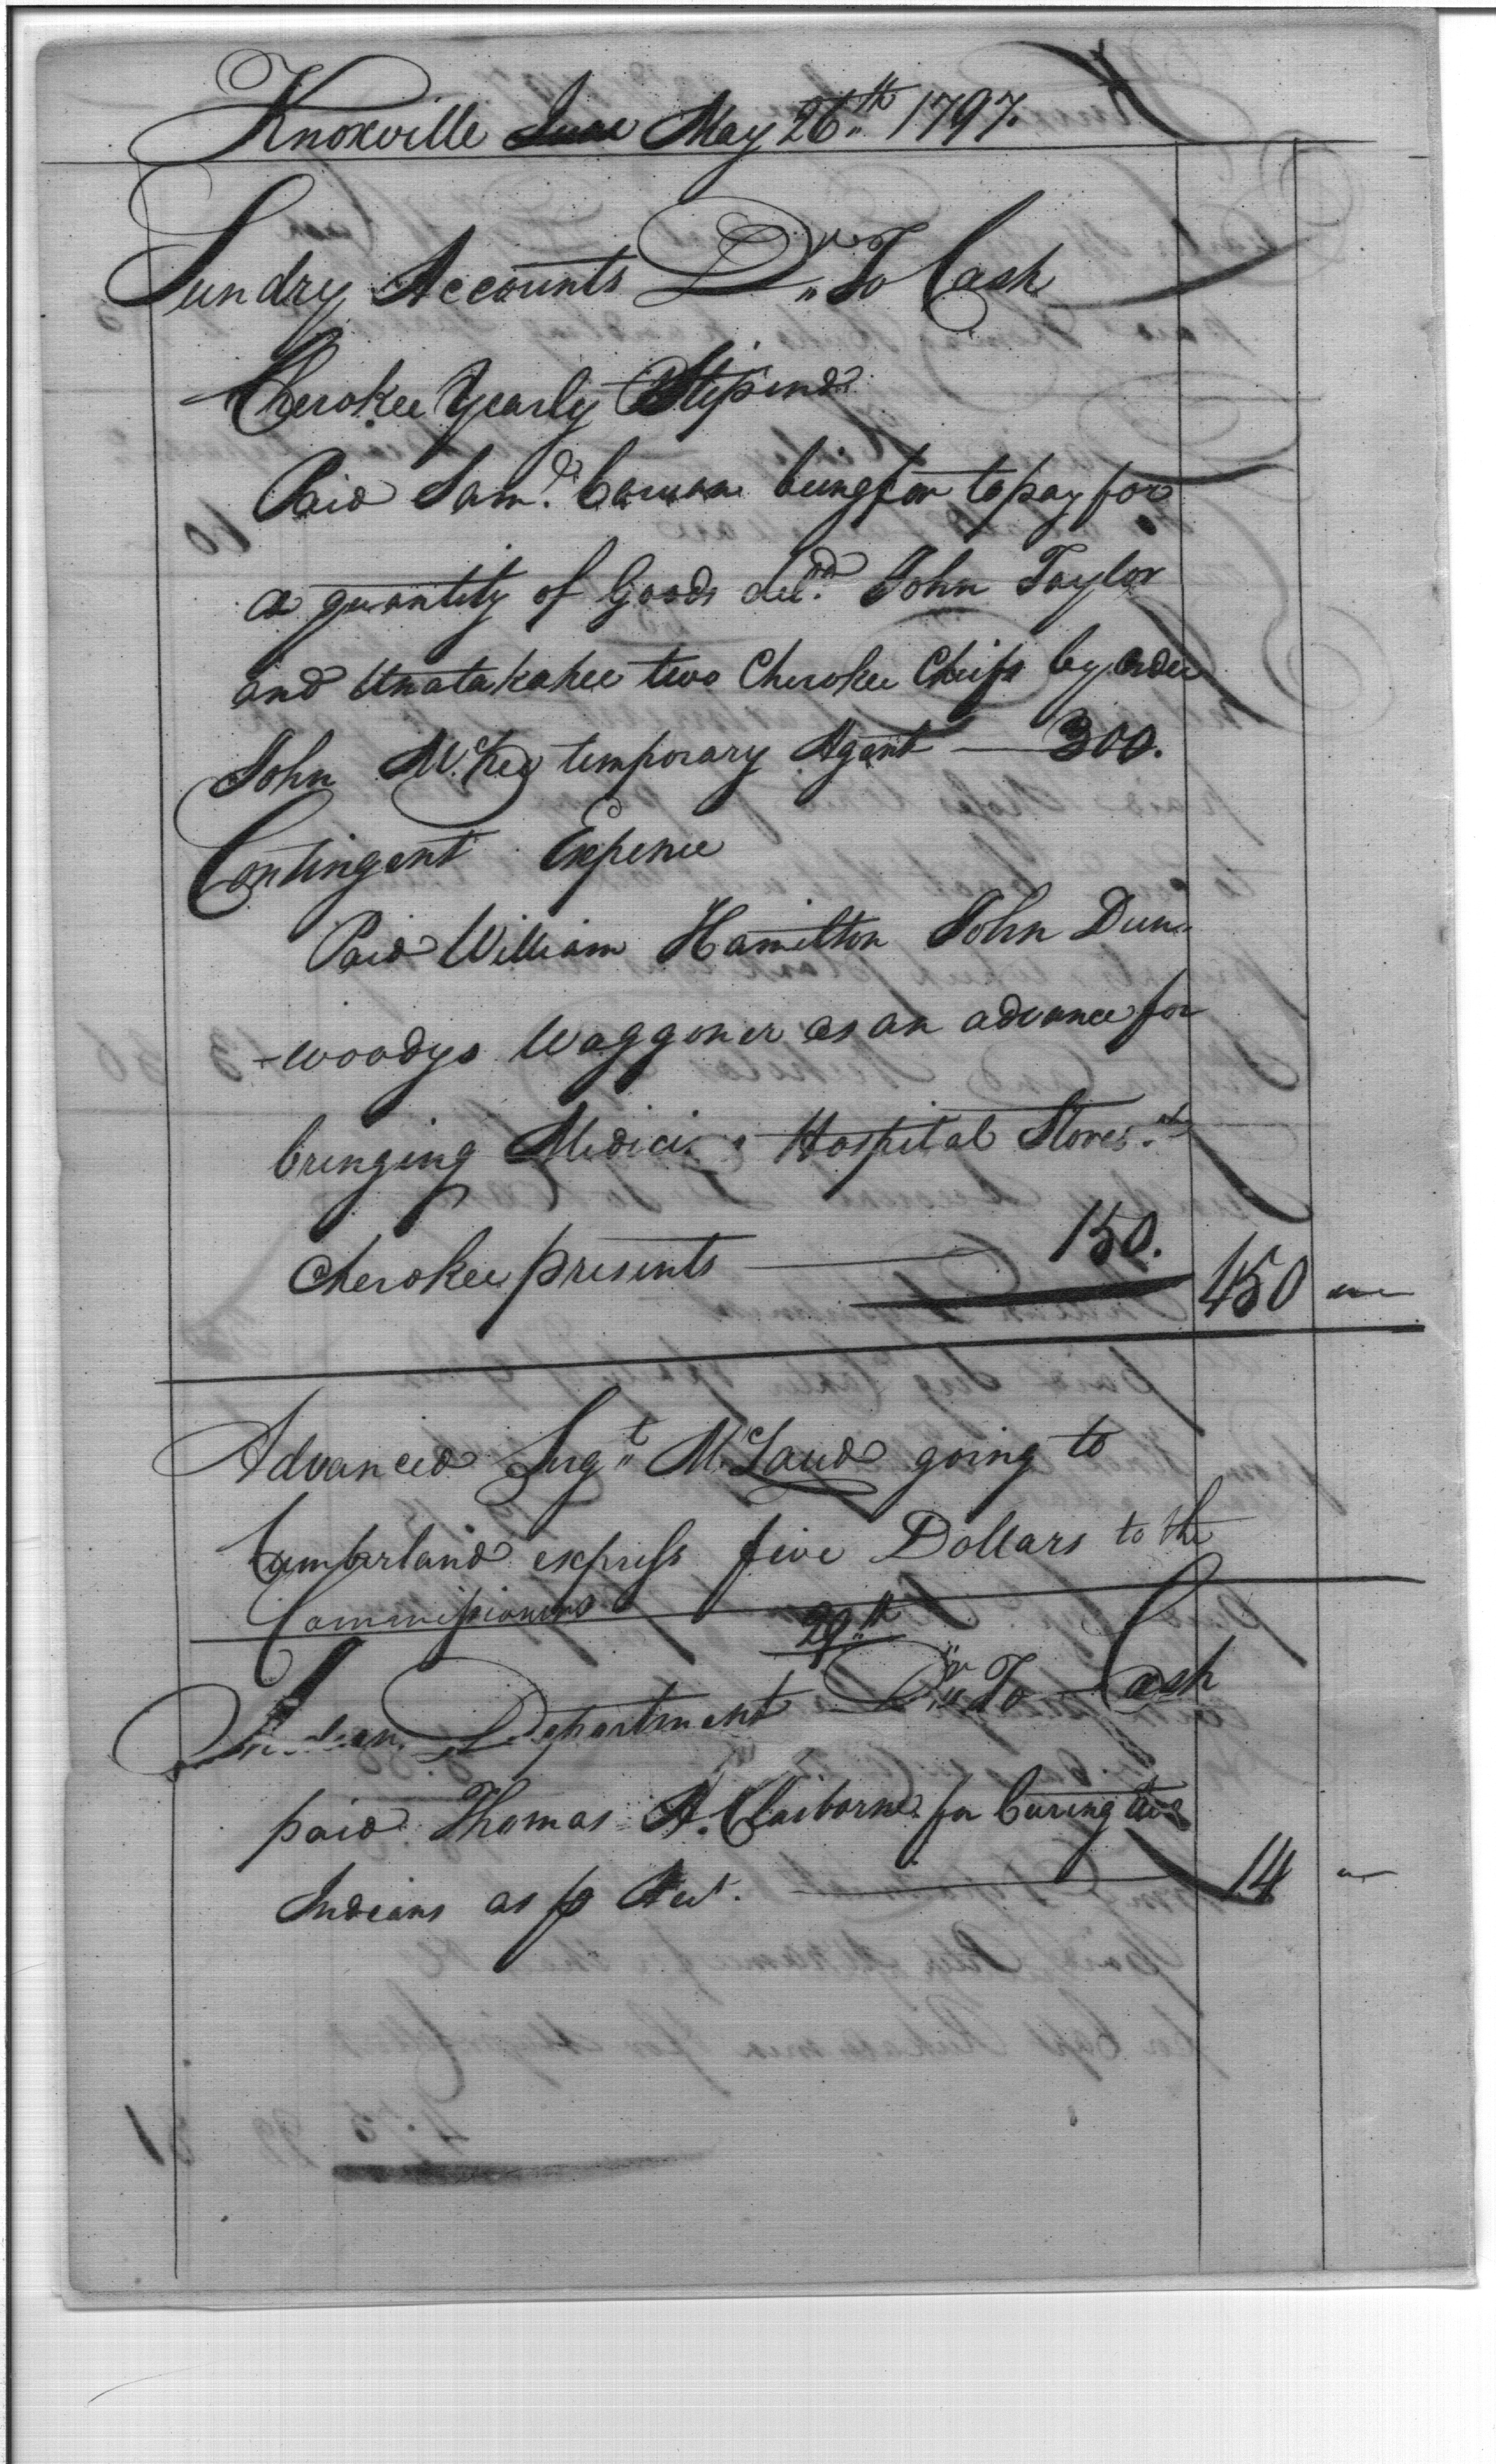 Knoxville June May 26th 1797.
Sundry Accounts Dr To Cash
Cherokee Yearly Stipend
Paid Saml. Cowan being for to pay for
a quantity of Goods deld. John Taylor
and Unatakahee two Cherokee Chiefs by order
John McKee temporary Agent — 300.
Contingent Expence
Paid William Hamilton John Dun-
-woodys Waggoner as an advance for
bringing Medici Hospital Stores &
Cherokee presents — 150. 450 —
Advanced Sergt McLaud going to
Cumberland express five Dollars to the
Commissioners
29th
Indian Department Dr To Cash
paid Thomas A. Claiborne for Curing two
Indians as p Act. — 14 —